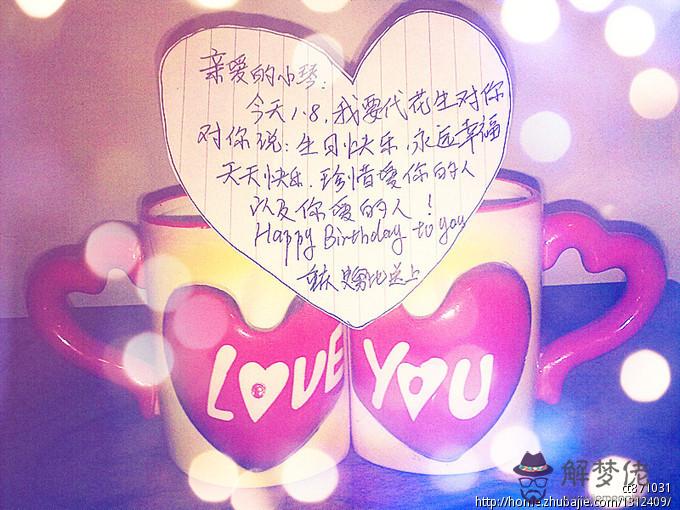 亲爱的小琴：
今天1.8，我要代花生对你
对你说：生日快乐，永远幸福
天天快乐，珍惜爱你的人
以及你爱的人！
Happy Birthday to you
送上
LOVE YOU
解梦佬
371031
http://home.zhubajie.com/1312409/